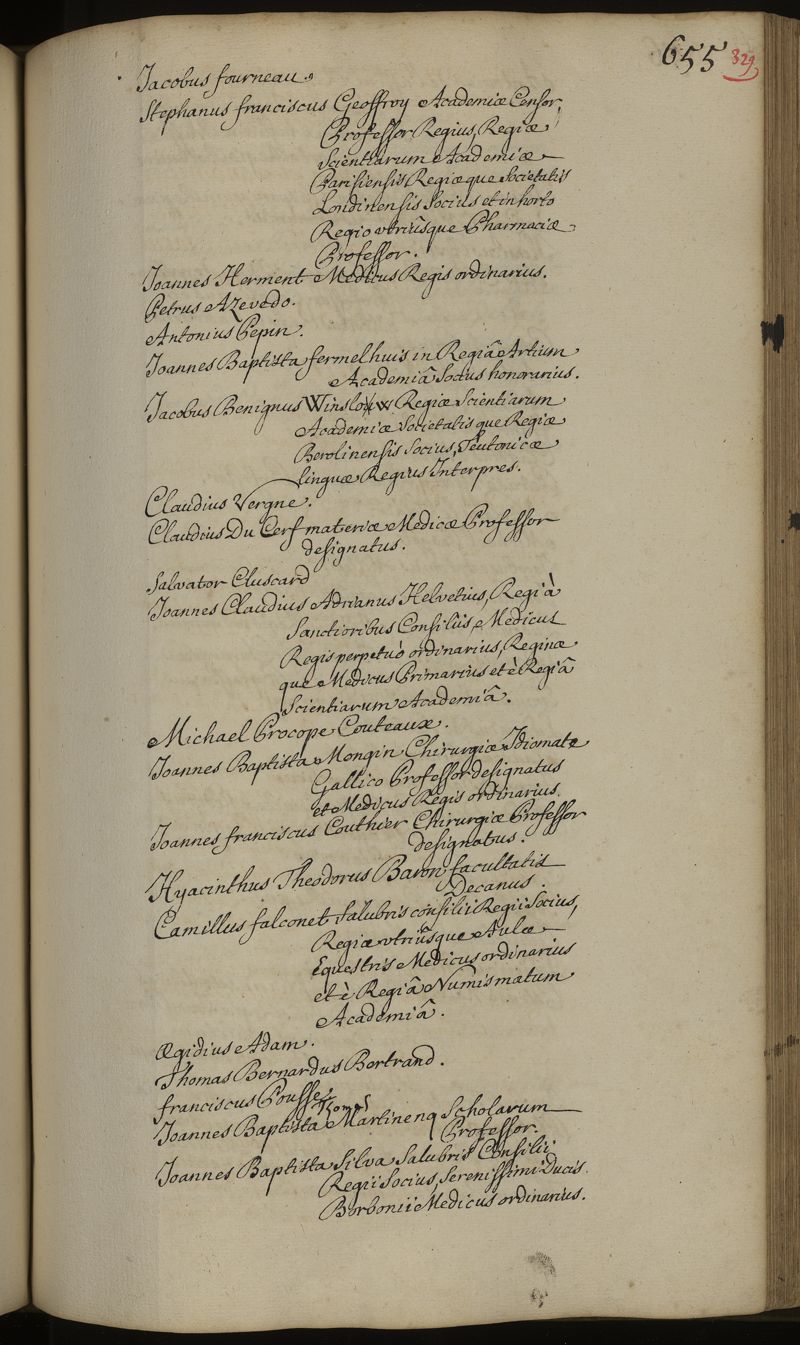 655
329
Jacobus fourneau.
Stephanus franciscus Geoffroy Academiæ Censor,
Professor Regius, Regiæ
Scientiarum Academiæ
Parisiensis Regiæque Societatis
Londinensis Socius et in horto
Regio utriûsque Pharmaciæ
Professor.
Joannes Herment Medicus Regis ordinarius.
Petrus Azevedo.
Antonius Pepin.
Joannes Baptista fermelhuis in Regiâ Artium
Academiâ Socius honorarius.
Jacobus Benignus Winslow Regiæ Scientiarum
Academiæ Societatisque Regiæ
Berolinensis Socius, Teutonicæ
linguæ Regius Interpres.
Claudius Vergne.
Claudius Du Cerf materiæ Medicæ Professor
designatus.
Salvator Cluscard
Joannes Claudius Adrianus Helvetius, Regi à
Sanctioribus Consiliis, Medicus
Regis perpetuò ordinarius, Reginæ
que Medicus Primarius et è Regiâ
Scientiarum Academiâ.
Michael Procope Couteaux.
Joannes Baptista Mongin Chirurgiæ Idiomate
Gallico Professor designatus
et Medicus Regis ordinarius.
Joannes franciscus Couthier Chirurgiæ Professor
designatus.
Hyacinthus Theodorus Baron facultatis
Decanus.
Camillus falconet Salubris consilii Regii Socius,
Regiæ utriûsque Aulæ
Equestris Medicus ordinarius
et è Regiâ Numismatum
Academiâ.
Ægidius Adam.
Thomas Bernardus Bertrand.
franciscus Pousse
Joannes Baptista Thomas Martinenq Scholarum
Professor.
Joannes Baptista Silva Salubris Consilii
Regii Socius, Serenissimi Ducis
Borbonii Medicus ordinarius.